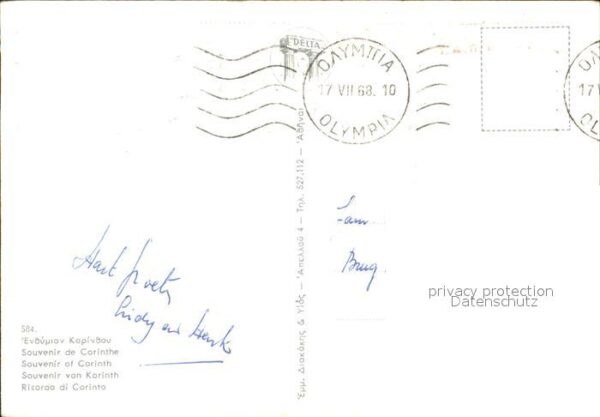 DELTA
ΟΛΥΜΠΙΑ
17 VII 68. 10
OLYMPIA
ΟΛ
17 V
OL
Ερμ. Διακάκης & Υἱός — Ἀπελλοῦ 4 — Τηλ. 527.112 — Ἀθῆναι
Fam.
Brug.
privacy protection
Datenschutz
Hart. groeten
Lidy en Henk
584.
Ἐνθύμιον Κορίνθου
Souvenir de Corinthe
Souvenir of Corinth
Souvenir von Korinth
Ricordo di Corinto